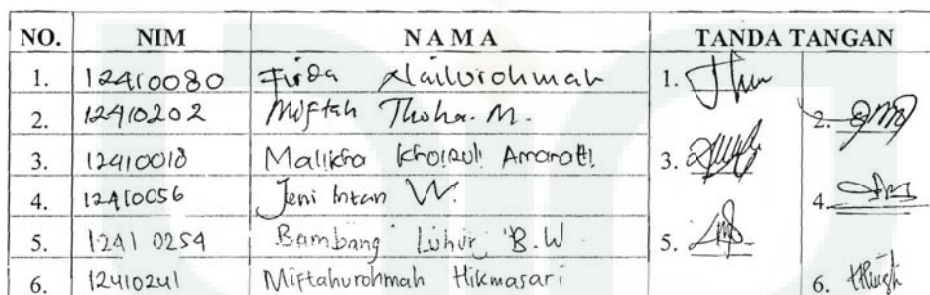 NO. NIM NAMA TANDA TANGAN
1. 12410080 Firda Nailurohmah 1.
2. 12410202 Miftah Thoha. M. 2.
3. 12410018 Malikha Khoirul Amaroti 3.
4. 12410056 Jeni Intan W. 4.
5. 12410254 Bambang Luhur B.W 5.
6. 12410241 Miftahurohmah Hikmasari 6.